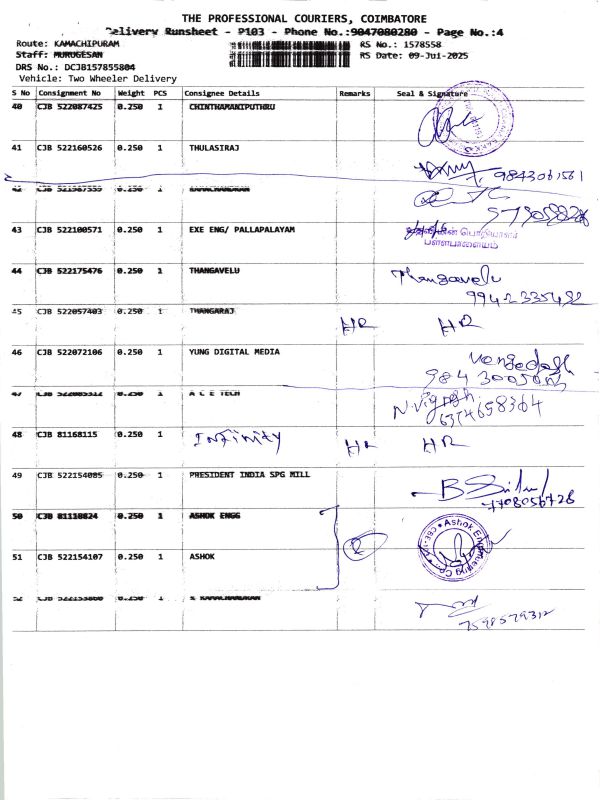 THE PROFESSIONAL COURIERS, COIMBATORE
Delivery Runsheet - P103 - Phone No.:9047080280 - Page No.:4
Route: KAMACHIPURAM RS No.: 1578558
Staff: MURUGESAN RS Date: 09-Jul-2025
DRS No.: DCJB157855804
Vehicle: Two Wheeler Delivery
S No Consignment No Weight PCS Consignee Details Remarks Seal & Signature
40 CJB 522087425 0.250 1 CHINTHAMANIPUTHRU
41 CJB 522160526 0.250 1 THULASIRAJ
9843061561
42 CJB 0.250 1
43 CJB 522100571 0.250 1 EXE ENG/ PALLAPALAYAM
பொறியாளர்
பள்ளபாளையம்
44 CJB 522175476 0.250 1 THANGAVELU Thangavelu
9942335492
45 CJB 522057403 0.250 1 THANGARAJ HR HR
46 CJB 522072106 0.250 1 YUNG DIGITAL MEDIA
47 CJB 0.250 1 A C E TECH
6374658364
48 CJB 81168115 0.250 1 Infinity HR HR
49 CJB 522154085 0.250 1 PRESIDENT INDIA SPG MILL
7708056728
50 CJB 81118624 0.250 1 ASHOK ENGG
Ashok
51 CJB 522154107 0.250 1 ASHOK
52 CJB 0.250 1
7598579312